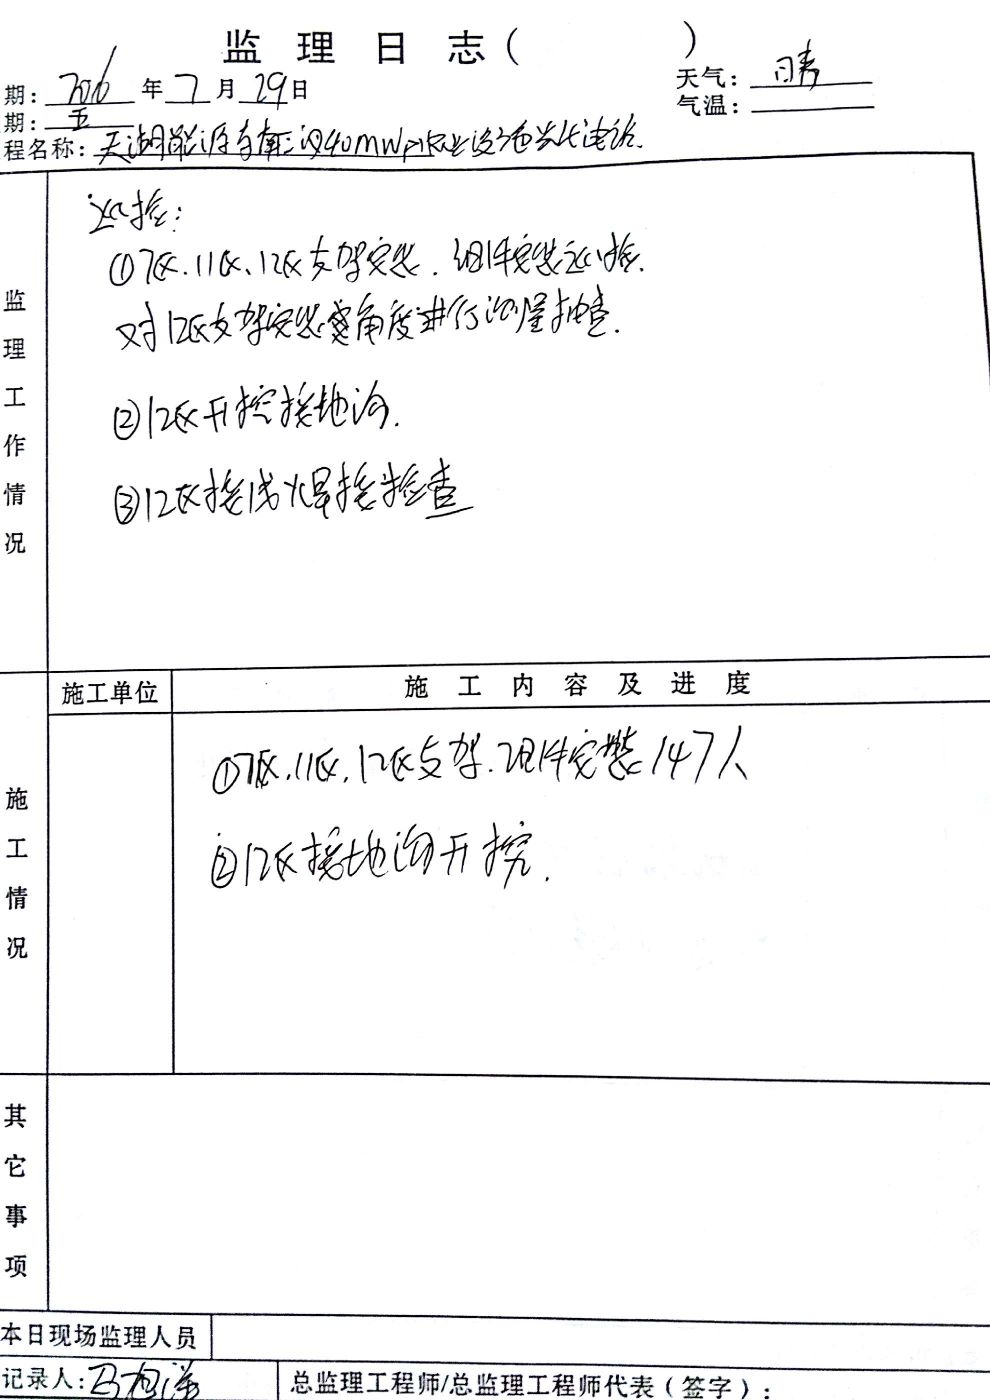 监理日志( )
期: 2016 年 7 月 29 日 天气: 晴
期: 五 气温:
程名称: 天湖能源阜南三河40MWp农业设施光伏电站.
监理工作情况
巡检:
①7区、11区、12区支架安装、组件安装巡检.
对12区支架安装角度进行测量抽查.
②12区开挖接地沟.
③12区接地焊接检查
施工情况
施工单位 施工内容及进度
①7区、11区、12区支架、组件安装147人
②12区接地沟开挖.
其它事项
本日现场监理人员
记录人: 马旭洋 总监理工程师/总监理工程师代表(签字):